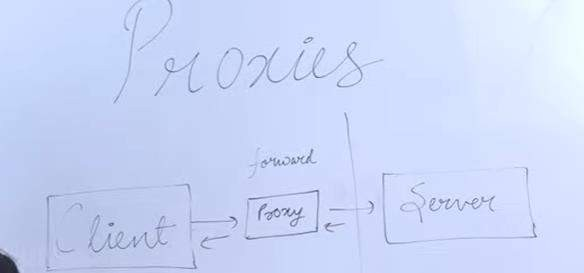 Proxies
forward
Client Proxy Server